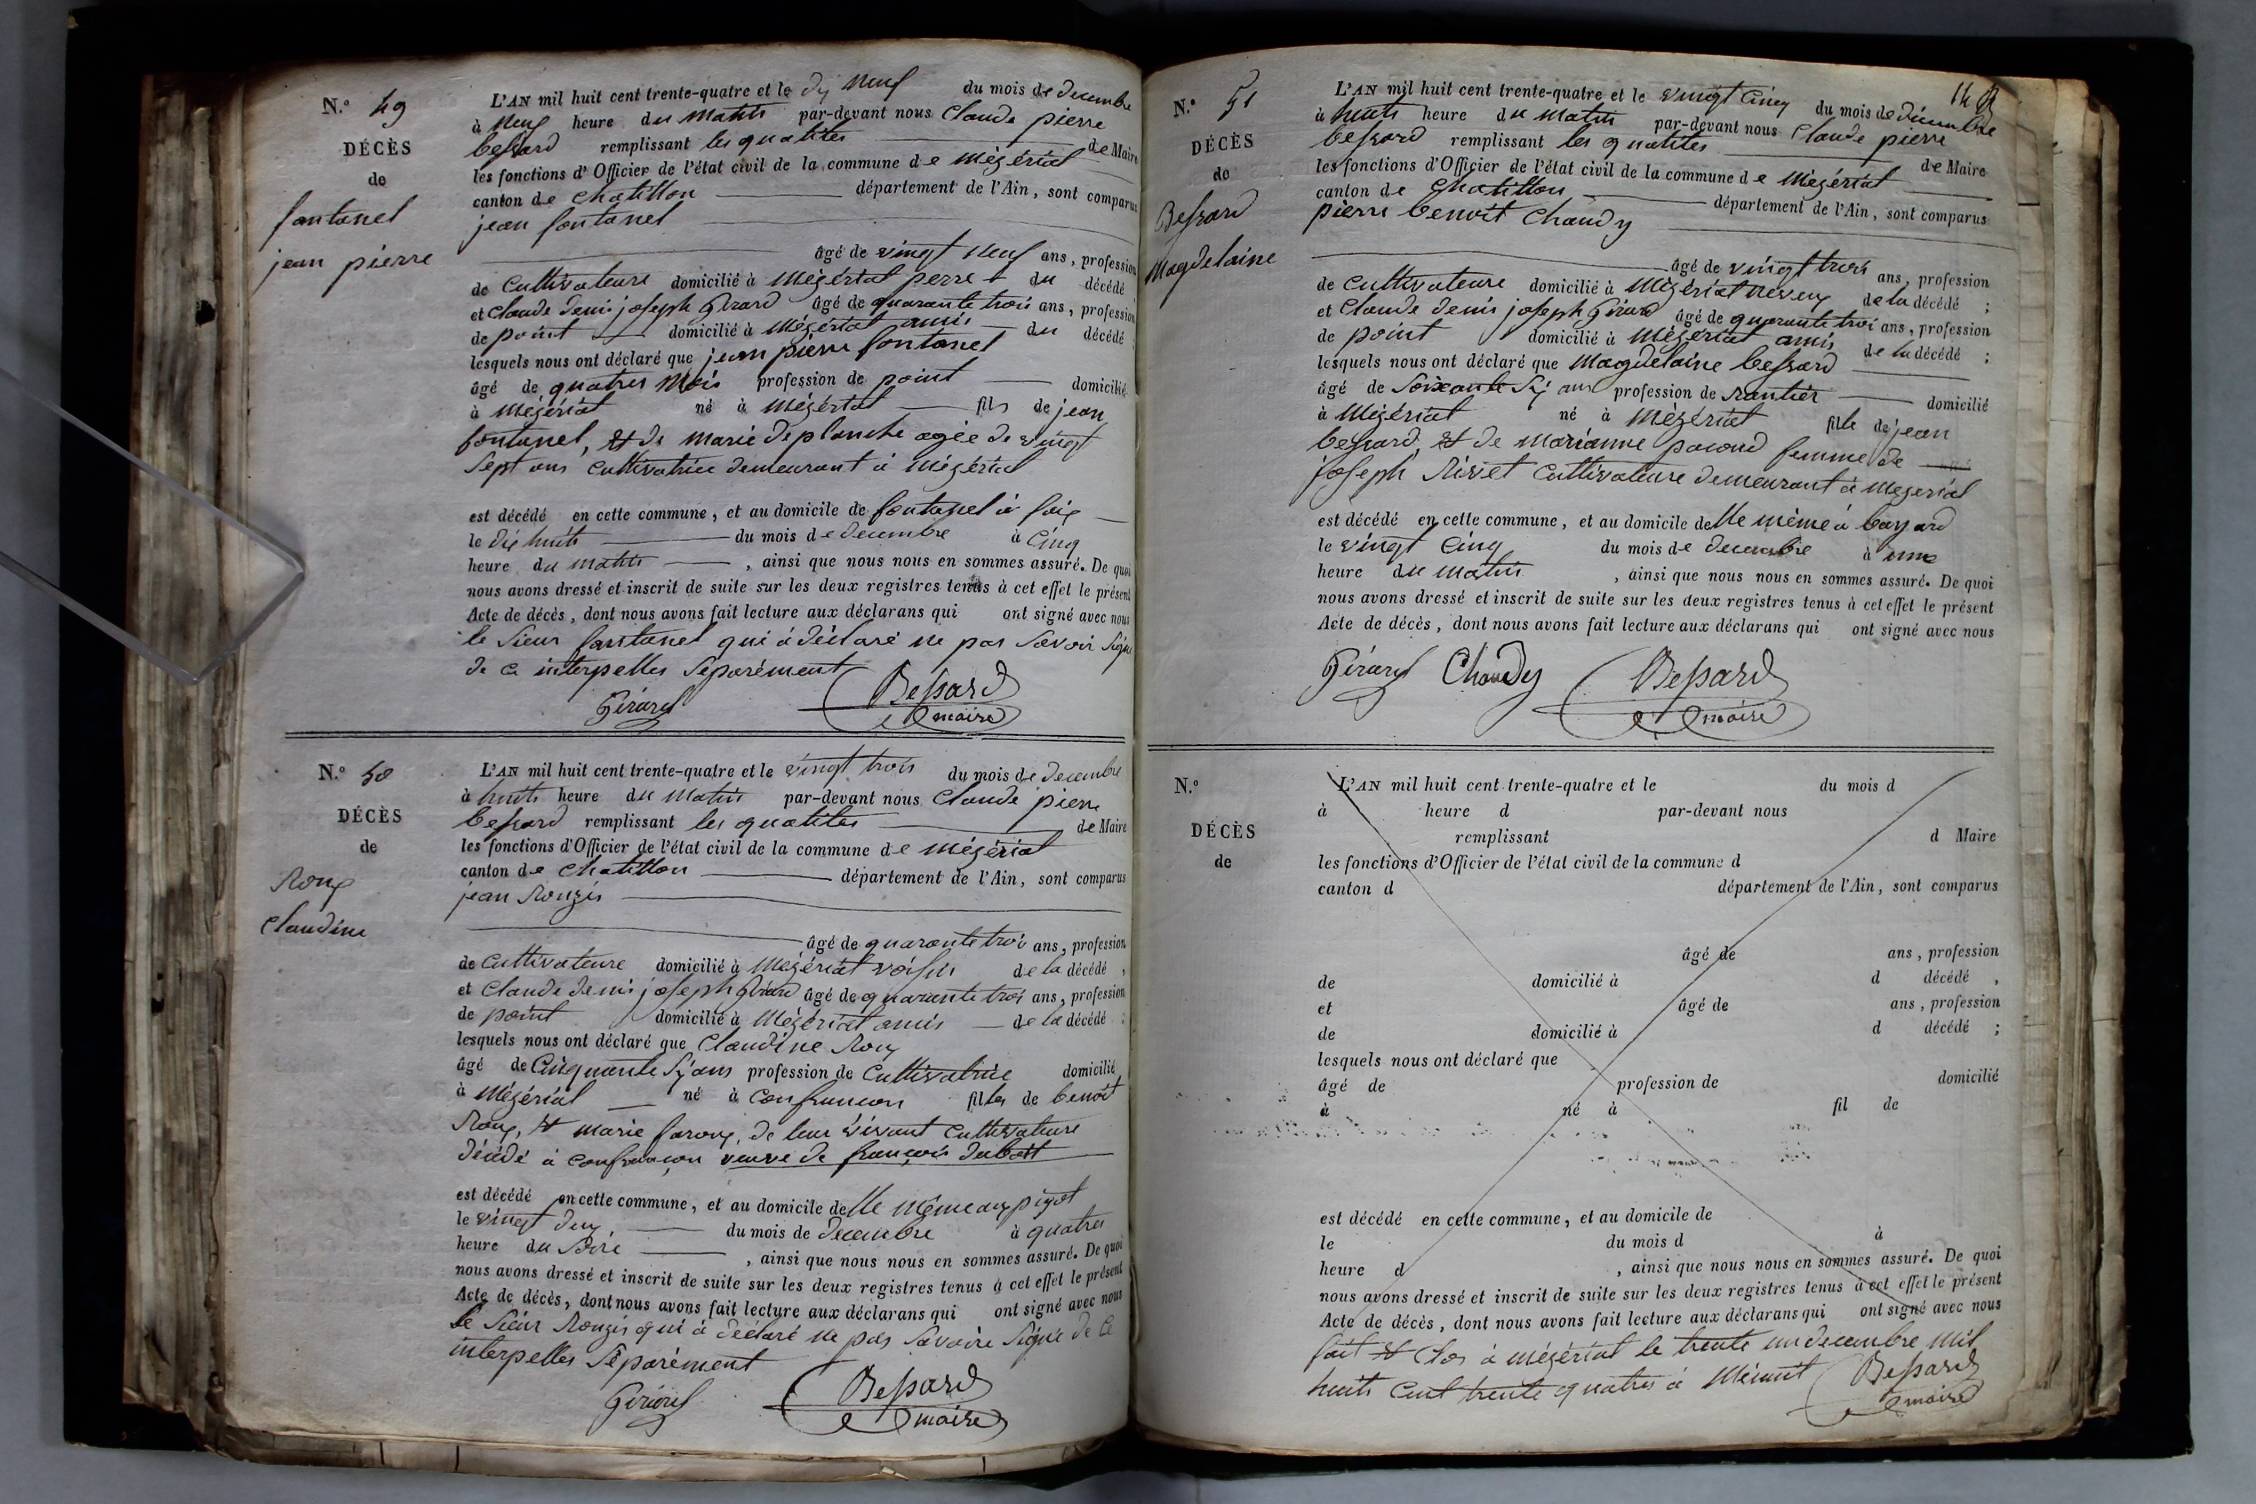 N.° 49
DÉCÈS
de
fontanel
jean pierre
L'AN mil huit cent trente-quatre et le dix neuf du mois de decembre
à neuf heure du matin par-devant nous Claude pierre
bessard remplissant les qualités de Maire
les fonctions d'Officier de l'état civil de la commune de mézériat
canton de Chatillon département de l'Ain, sont comparus
jean fontanel
âgé de vingt neuf ans, profession
de Cultivateure domicilié à Mézériat perre du décédé
et Claude denis joseph Girard âgé de quarante trois ans, profession
de point domicilié à Mézériat amis du décédé
lesquels nous ont déclaré que jean pierre fontanel
âgé de quatres Mois profession de point domicilié
à Mézériat né à Mézériat fils de jean
fontanel, et de marie deplanche agée de vingt
Sept ans Cultivatrice demeurant à Mézériat
est décédé en cette commune, et au domicile de fontanel à
le dix huit du mois de decembre à Cinq
heure du matin, ainsi que nous nous en sommes assuré. De quoi
nous avons dressé et inscrit de suite sur les deux registres tenus à cet effet le présent
Acte de décès, dont nous avons fait lecture aux déclarans qui ont signé avec nous
le Sieur fontanel qui à déclaré ne pas Savoir Signé
de ce interpelles Séparément
Girard Bessard
maire
N.° 50
DÉCÈS
de
Roux
Claudine
L'AN mil huit cent trente-quatre et le vingt trois du mois de decembre
à huits heure du Matin par-devant nous Claude pierre
bessard remplissant les qualités de Maire
les fonctions d'Officier de l'état civil de la commune de mézériat
canton de Chatillon département de l'Ain, sont comparus
jean Rongis
âgé de quarante trois ans, profession
de Cultivateure domicilié à Mézériat voisin de la décédé,
et Claude denis joseph Girard âgé de quarante trois ans, profession
de point domicilié à Mézériat amis de la décédé;
lesquels nous ont déclaré que Claudine Roux
âgé de Cinquante Six ans profession de Cultivatrice domicilié
à Mézériat né à Confrancon filles de benoit
Roux, et marie faroux, de leur vivant Cultivateure
décédé à confrancon veuve de françois duboit
est décédé en cette commune, et au domicile de lle même aux pigot
le vingt deux du mois de decembre à quatres
heure du Soire, ainsi que nous nous en sommes assuré. De quoi
nous avons dressé et inscrit de suite sur les deux registres tenus à cet effet le présent
Acte de décès, dont nous avons fait lecture aux déclarans qui ont signé avec nous
le Sieur Rongis qui à déclaré ne pas Savoire Signé de Ce
interpelles Séparément
Girard Bessard
maire
N.° 51
DÉCÈS
de
Bessard
Magdelaine
L'AN mil huit cent trente-quatre et le vingt Cinq du mois de décembre
à huits heure du matin par-devant nous Claude pierre
bessard remplissant les qualités de Maire
les fonctions d'Officier de l'état civil de la commune de Mézériat
canton de Chatillon département de l'Ain, sont comparus
pierre benoit Chaudy
âgé de vingt trois ans, profession
de Cultivateure domicilié à Mézériat neveux de la décédé;
et Claude denis joseph Girard âgé de quarante troi ans, profession
de point domicilié à Mézériat amis de la décédé;
lesquels nous ont déclaré que Magdelaine bessard
âgé de Soixante Six ans profession de Rantier domicilié
à Mézériat né à Mézériat fille de jean
bessard, et de marianne pacoud femme de
joseph Rivet Cultivateure demeurant à Mézériat
est décédé en cette commune, et au domicile de lle même à bayard
le vingt Cinq du mois de decembre à une
heure du Matin, ainsi que nous nous en sommes assuré. De quoi
nous avons dressé et inscrit de suite sur les deux registres tenus à cet effet le présent
Acte de décès, dont nous avons fait lecture aux déclarans qui ont signé avec nous
Girard Chaudy Bessard
maire
N.°
DÉCÈS
de
L'AN mil huit cent trente-quatre et le du mois d
à heure d par-devant nous
remplissant d Maire
les fonctions d'Officier de l'état civil de la commune d
canton d département de l'Ain, sont comparus
âgé de ans, profession
de domicilié à d décédé,
et âgé de ans, profession
de domicilié à d décédé;
lesquels nous ont déclaré que
âgé de profession de domicilié
à né à fil de
est décédé en cette commune, et au domicile de
le du mois d à
heure d, ainsi que nous nous en sommes assuré. De quoi
nous avons dressé et inscrit de suite sur les deux registres tenus à cet effet le présent
Acte de décès, dont nous avons fait lecture aux déclarans qui ont signé avec nous
fait et Clos à mézériat le trente un decembre mil
huits Cent trente quatres à Minuit Bessard
maire